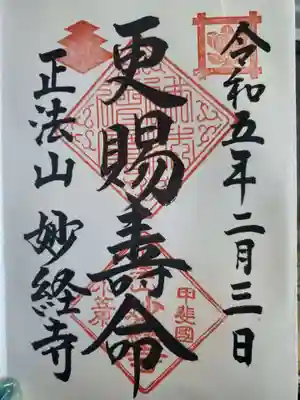 令和五年二月三日
更賜壽命
正法山 妙経寺
甲斐國